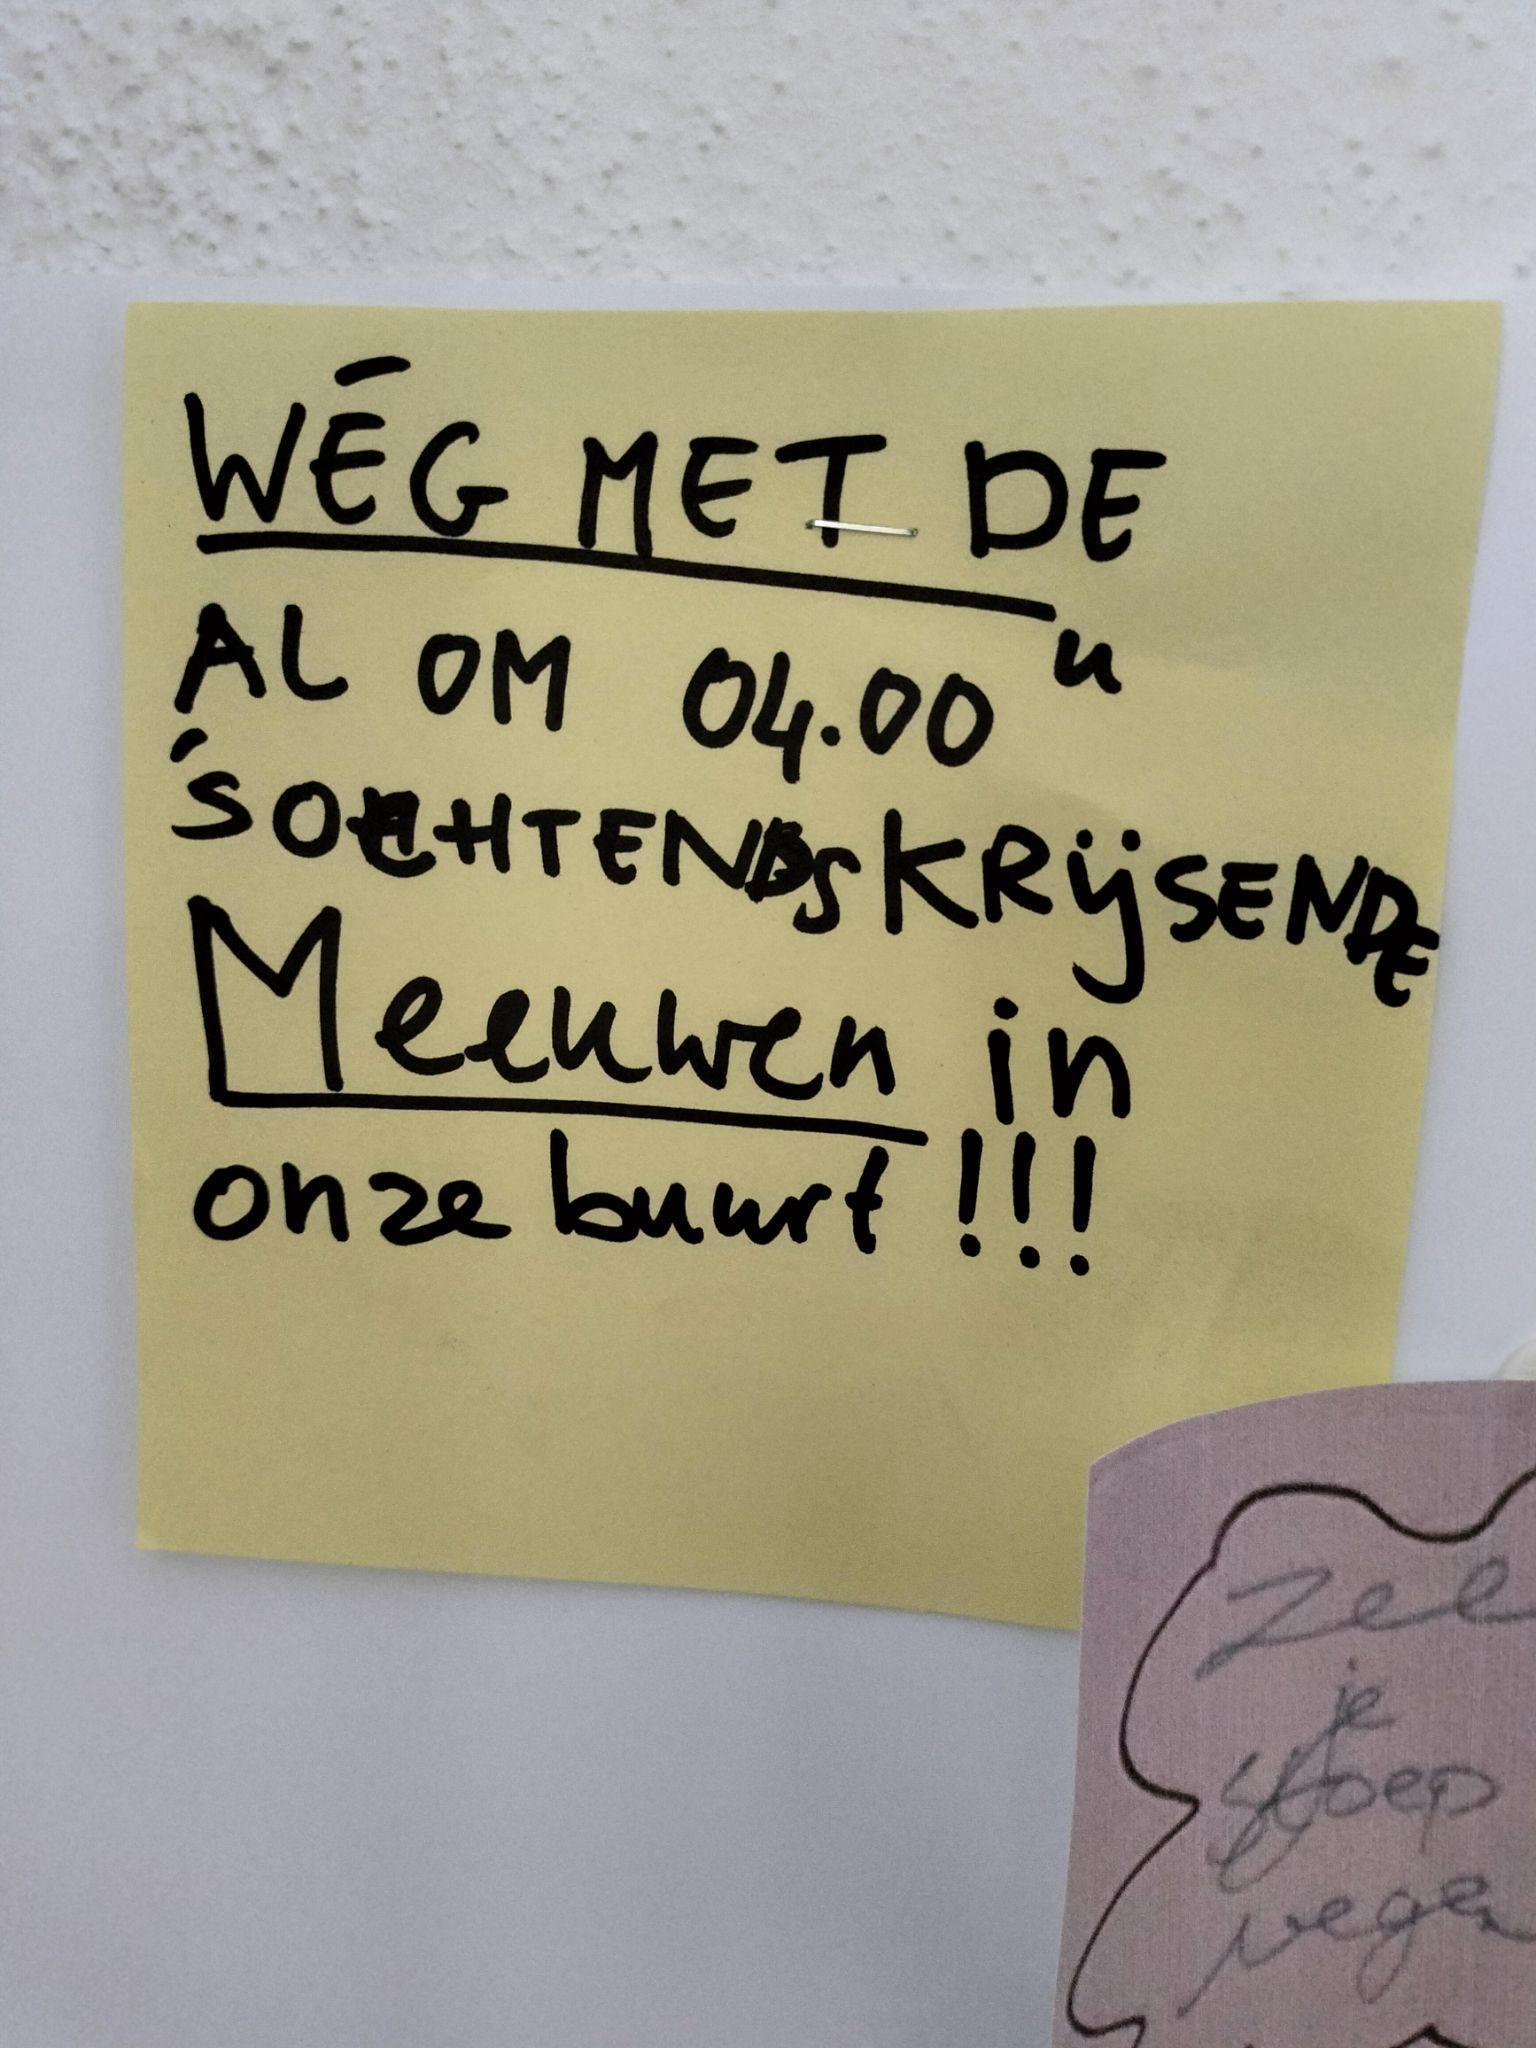 WÉG MET DE
AL OM 04.00 u
'SOCHTENDS KRIJSENDE
Meeuwen in
onze buurt!!!
Zee
je
stoep
vegen